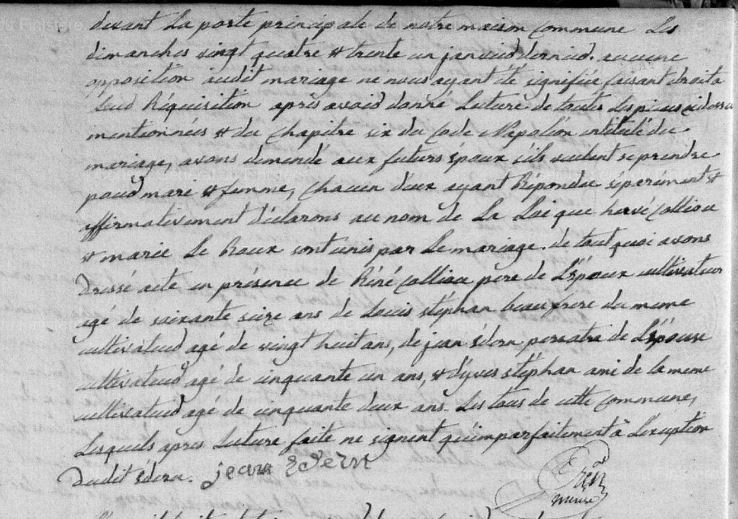 devant la porte principale de notre maison Commune les
dimanches vingt quatre et trente un janvier dernier. aucune
opposition audit mariage ne nous ayant été signifiée faisant droit à
Réquisition après avoir donné lecture de toutes les pieces ci dessus
mentionnées et du Chapitre six du Code Napoléon intitulé du
mariage, avons demandé aux futurs époux s'ils veulent se prendre
pour mari et femme, Chacun d'eux ayant Répondu séparément et
affirmativement déclarons au nom de La Loi que hervé Calliou
et marie Le Roux sont unis par Le mariage. de tout quoi avons
Dressé acte en présence de Réné Calliou père de L'époux cultivateur
agé de soixante seize ans de Louis stéphan beaufrere du meme
cultivateur agé de vingt huit ans, de jean Edern, peratre de L'épouse
cultivateur agé de cinquante un ans, et d'yves stéphan ami de la meme
cultivateur agé de cinquante deux ans. Les tous de cette Commune,
Lesquels après Lecture faite ne signent qu'imparfaitement à L'exuption
Dudit Edern. jean Edern